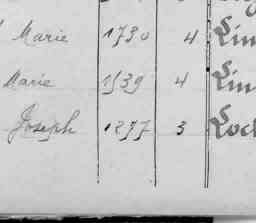 Marie 1730 4 Lin
Marie 1539 4 Lin
Joseph 1277 3 Loc